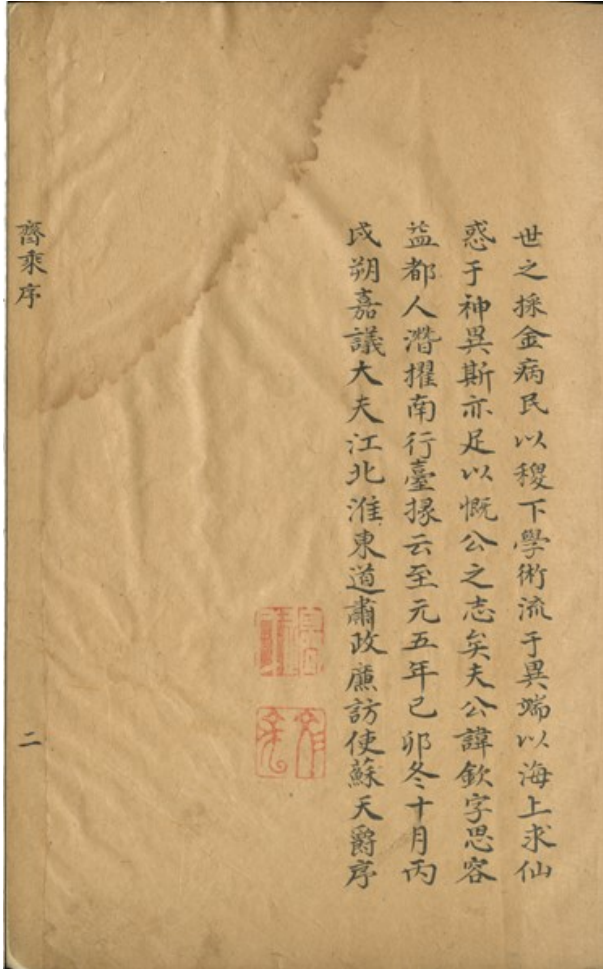 世之採金病民以稷下學術流于異端以海上求仙
惑于神異斯亦足以慨公之志矣夫公諱欽字思容
益都人潛擢南行臺掾云至元五年己卯冬十月丙
戌朔嘉議大夫江北淮東道肅政廉訪使蘇天爵序
齊乘序
二